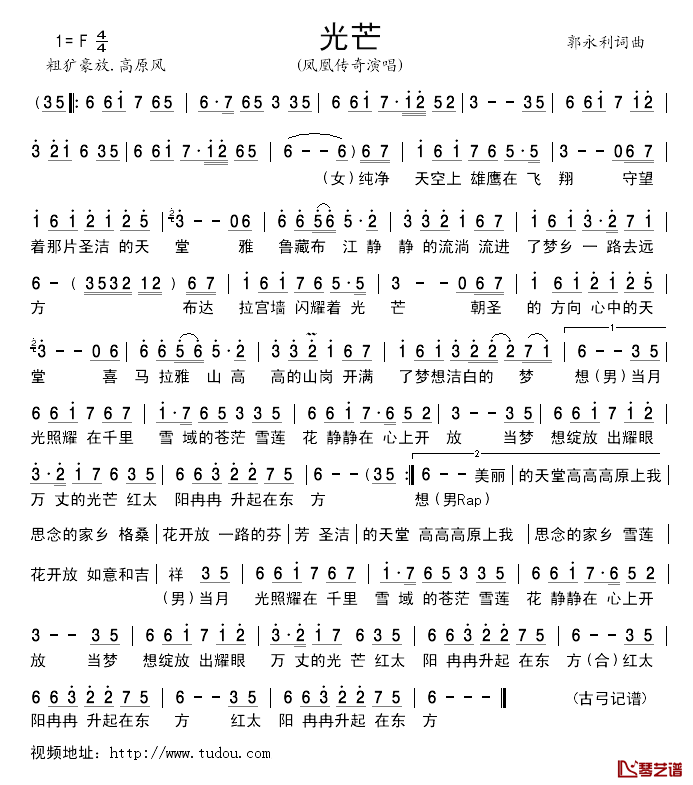 光芒
1= F 4/4
郭永利词曲
粗犷豪放.高原风
(凤凰传奇演唱)
(3 5 ‖: 6 6 1 7 6 5 | 6·7 6 5 3 3 5 | 6 6 1 7·1 2 5 2 | 3 - - 3 5 | 6 6 1 6 7 1 2 |
3 2 1 6 3 5 | 6 6 1 7·1 2 3 5 | 6 - - 6 ) 6 7 | 1 6 1 7 6 5·5 | 3 - - 0 6 7 |
(女)纯净 天空上 雄鹰在 飞 翔 守望
1 6 1 2 1 2 5 | 3 - - 0 6 | 6 6 5 6 5·2 | 3 3 2 1 6 7 | 1 6 1 3·2 7 1 |
着那片圣洁 的天 堂 雅 鲁藏布 江 静 静 的流淌 流进 了梦乡 一 路去远
6 - ( 3 5 3 2 1 2 ) 6 7 | 1 6 1 7 6 5·5 | 3 - - 0 6 7 | 1 6 1 2 1 2 5 |
方 布达 拉宫墙 闪耀着 光 芒 朝圣 的 方向 心中的天
3 - - 0 6 | 6 6 5 6 5·2 | 3 3 2 1 6 7 | 1 6 1 3 2 2 2 7 1 | 1 6 - - 3 5 |
堂 喜 马 拉雅 山 高 高的山岗 开满 了梦想洁白的 梦 想(男)当月
6 6 1 7 6 7 | 1·7 6 5 3 3 5 | 6 6 1 7·6 5 2 | 3 - - 3 5 | 6 6 1 6 7 1 2 |
光照耀 在千里 雪 域的苍茫 雪莲 花 静静在 心上开 放 当梦 想绽放 出耀眼
3·2 1 7 6 3 5 | 6 6 3 2 2 7 5 | 6 - - (3 5 :‖ 2 6 - - 美丽 | 的天堂高高高原上我
万 丈的光芒 红太 阳冉冉 升起在东 方 想(男Rap)
思念的家乡 格桑 | 花开放 一路的芬 | 芳 圣洁 | 的天堂 高高高原上我 | 思念的家乡 雪莲
花开放 如意和吉 | 祥 3 5 | 6 6 1 7 6 7 | 1·7 6 5 3 3 5 | 6 6 1 7·6 5 2 |
(男)当月 光照耀在 千里 雪 域 的苍茫 雪莲 花 静静在 心上开
3 - - 3 5 | 6 6 1 6 7 1 2 | 3·2 1 7 6 3 5 | 6 6 3 2 2 7 5 | 6 - - 3 5 |
放 当梦 想绽放 出耀眼 万 丈的光 芒 红太 阳 冉冉升起 在东 方(合)红太
6 6 3 2 2 7 5 | 6 - - 3 5 | 6 6 3 2 2 7 5 | 6 - - ‖ (古弓记谱)
阳冉冉 升起在东 方 红太 阳 冉冉升起 在东 方
视频地址: http://www.tudou.com/
琴艺谱